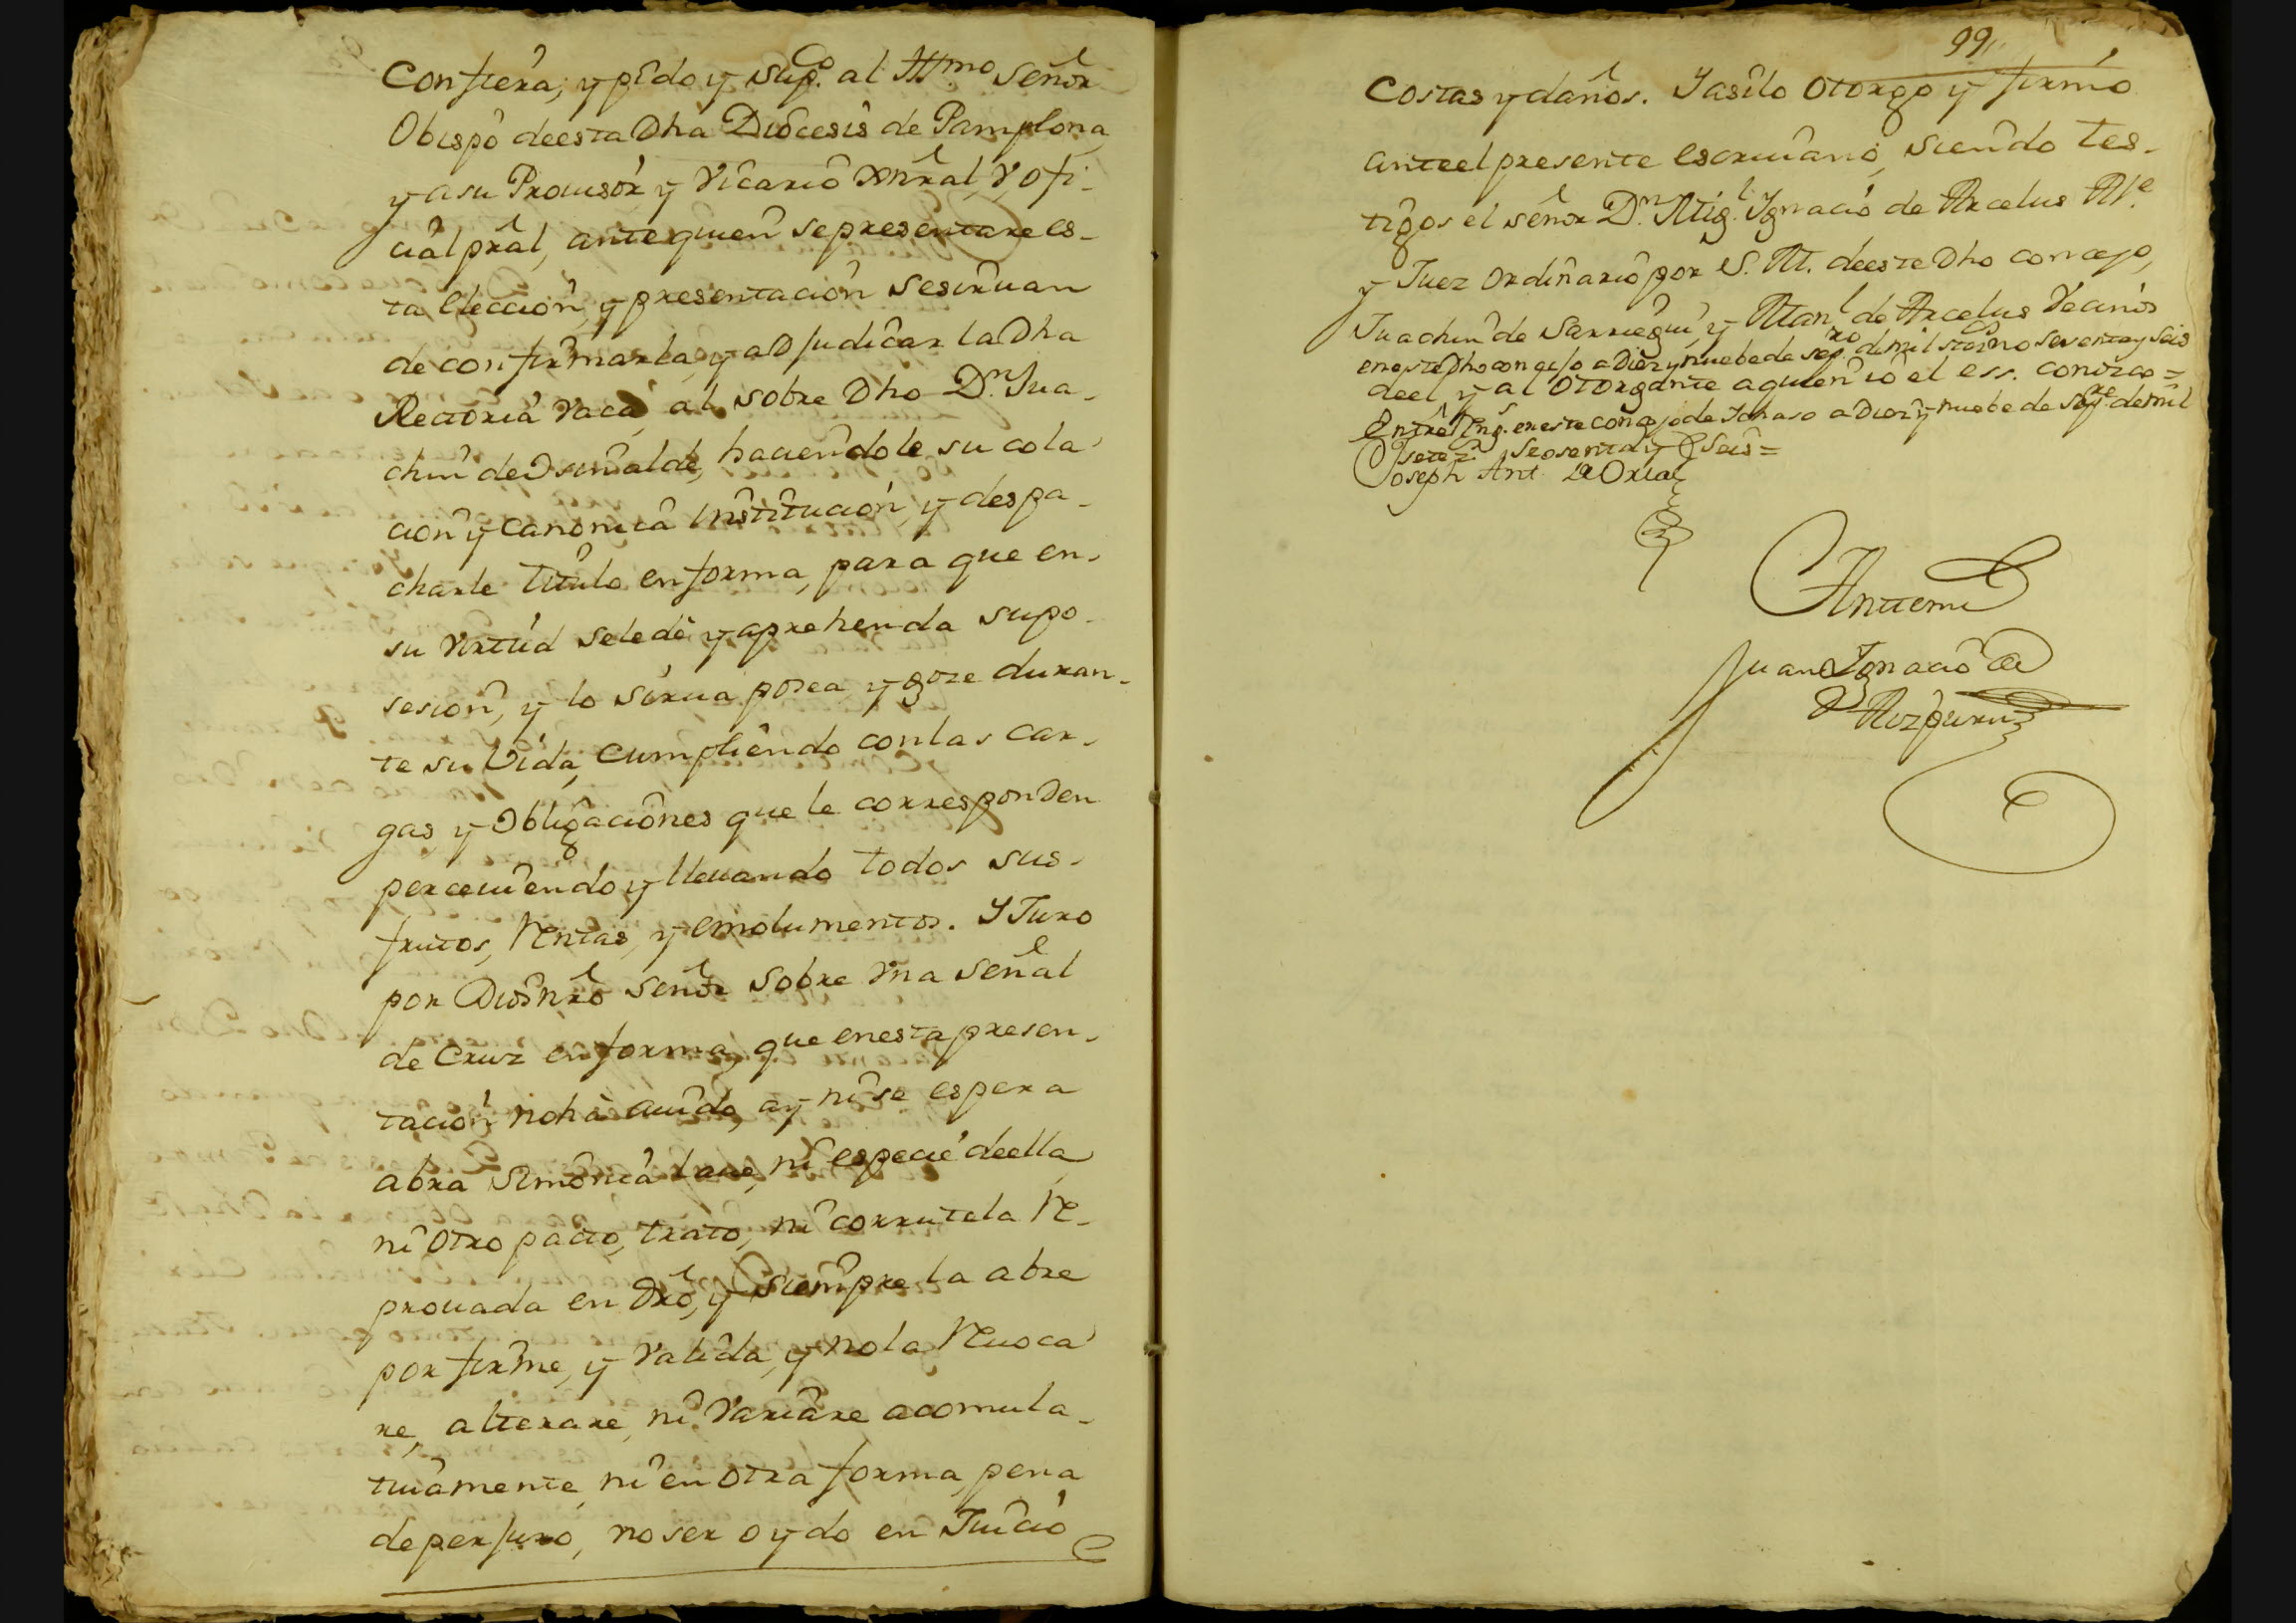 Confiera; y pido y sup.co al Ill.mo Señor
Obispo deesta Dha Diocesis de Pamplona
y asu Prouisor y Vicario Xnral, y ofi-
cial pral, antequien sepresentare es-
ta eleccion, y presentacion sesiruan
de confirmarla, y adjudicar la Dha
Rectoria vaca, al sobre Dho D.n Jua-
chin de Isunalde, haciendole su cola-
cion y canonica institucion, y despa-
charle titulo en forma, para que en-
su virtud selede y aprehenda supo-
sesion, y lo sirua posea y goze duran-
te su vida, cumpliendo conlas car-
gas y obligaciones que le corresponden
perceuiendo y lleuando todos sus-
frutos, rentas, y emolumentos. Y Juro
por Dios nro señor sobre vna señal
de cruz en forma, que enesta presen-
tacion noha auido, ay ni se espera
abra simonia laue, ni especie deella
ni otro pacto, trato, ni corrutela re-
prouada en dro, y siempre la abre
por firme, y valida, y nola reuoca-
re, alterare, ni variare acomula-
tiuamente, ni en otra forma, pena
deperjuro, no ser oydo en Juicio
99,,
Costas y daños. Yasilo otorgo y firmo
anteel presente escriuano, siendo tes-
tigos el señor D.n Mig.l Ignacio de Arcelus Al.e
y Juez ordinario por S. M. deeste Dho concejo,
Juachin de Sarriegui, y Man.l de Arcelus vecinos
eneste Dho concejo a Diez y nuebe de sep.ro de mil setec.no sesenta y seis
deel y al otorgante aquien io el ess. conozco =
Entre Rng.s eneste concejo de Ichaso a Diez y nuebe de sep.re de mil
setez.s sesenta y seis =
Joseph Ant. de Oria
Antemi
Juan Ignacio de
Aizpuru